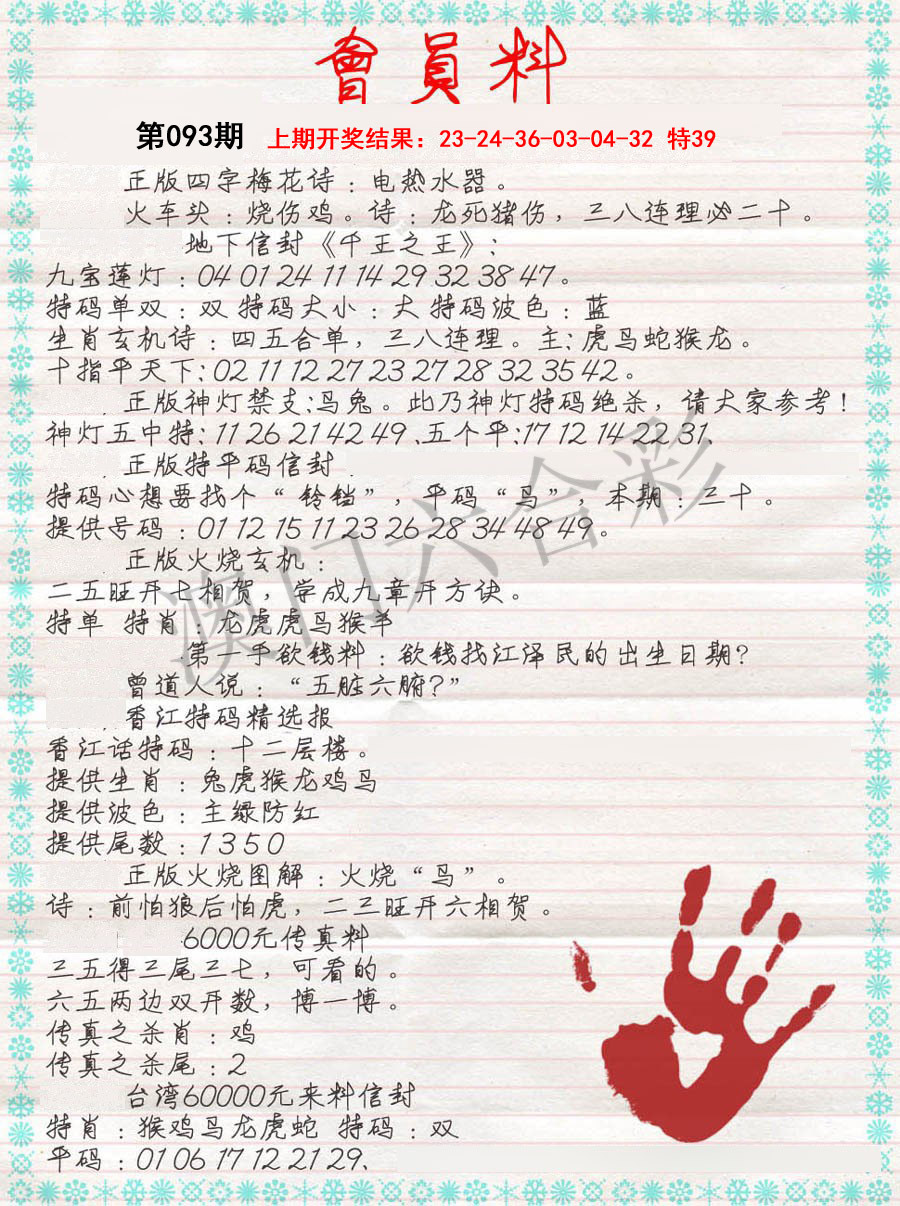 會員料
第093期 上期开奖结果：23-24-36-03-04-32 特39
正版四字梅花诗：电热水器。
火车头：烧伤鸡。诗：龙死猪伤，三八连理必二十。
地下信封《千王之王》：
九宝莲灯：04 01 24 11 14 29 32 38 47。
特码单双：双 特码大小：大 特码波色：蓝
生肖玄机诗：四五合单，三八连理。主：虎鸟蛇猴龙。
十指平天下：02 11 12 27 23 27 28 32 35 42。
正版神灯禁支：鸟兔。此乃神灯特码绝杀，请大家参考！
神灯五中特：11 26 21 42 49、五个平：17 12 14 22 31、
正版特平码信封
特码心想要找个“铃铛”，平码“鸟”，本期：三十。
提供号码：01 12 15 11 23 26 28 34 48 49。
正版火烧玄机：
二五旺开七相贺，学成九章开方诀。
特单 特肖：龙虎虎鸟猴羊
第一手欲钱料：欲钱找江泽民的出生日期？
曾道人说：“五脏六腑？”
香江特码精选报
香江话特码：十二层楼。
提供生肖：兔虎猴龙鸡鸟
提供波色：主绿防红
提供尾数：1 3 5 0
正版火烧图解：火烧“鸟”。
诗：前怕狼后怕虎，二三旺开六相贺。
6000元传真料
三五得三尾三七，可看的。
六五两边双开数，博一博。
传真之杀肖：鸡
传真之杀尾：2
台湾60000元来料信封
特肖：猴鸡鸟龙虎蛇 特码：双
平码：01 06 17 12 21 29、
澳门六合彩